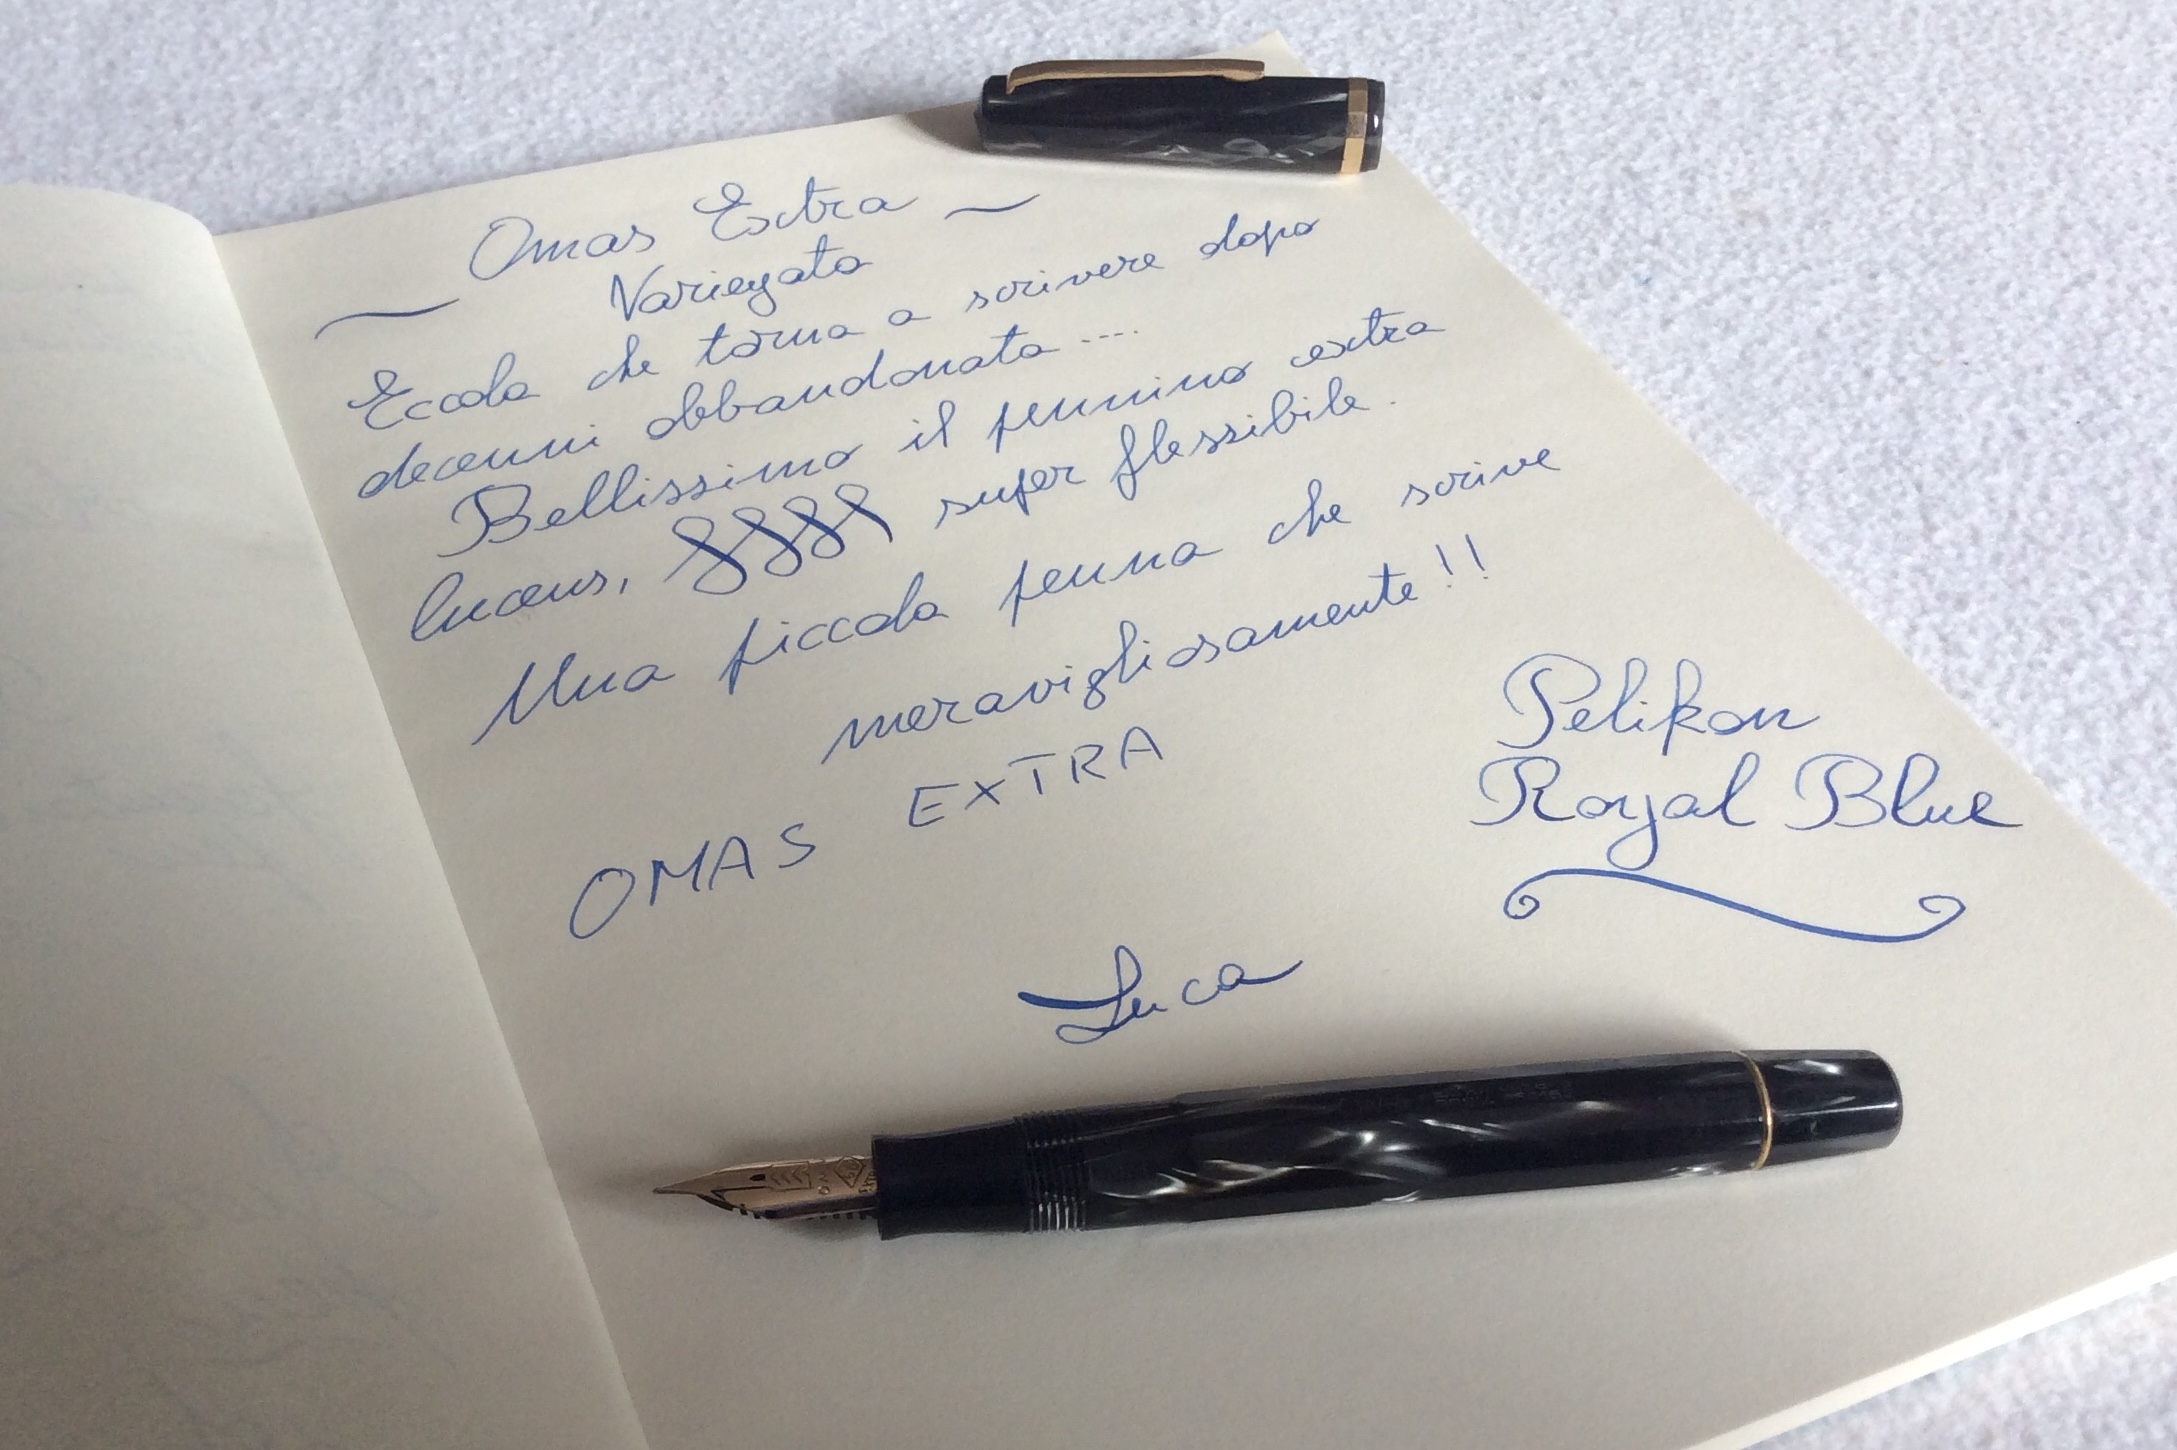 Omas Extra
Variegata
Eccola che torna a scrivere dopo
decenni abbandonata ....
Bellissimo il pennino extra
lucens, super flessibile.
Una piccola penna che scrive
meravigliosamente!!
OMAS EXTRA
Pelikan
Royal Blue
Luca